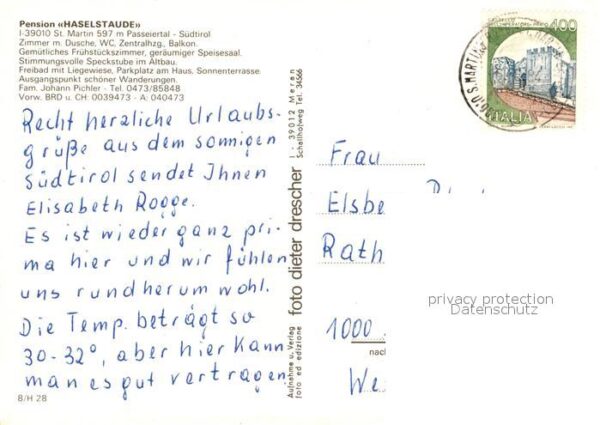 Pension «HASELSTAUDE»
I-39010 St. Martin 597 m Passeiertal - Südtirol
Zimmer m. Dusche, WC, Zentralhzg., Balkon.
Gemütliches Frühstückszimmer, geräumiger Speisesaal.
Stimmungsvolle Speckstube im Altbau.
Freibad mit Liegewiese, Parkplatz am Haus. Sonnenterrasse.
Ausgangspunkt schöner Wanderungen.
Fam. Johann Pichler - Tel. 0473/85848
Vorw. BRD u. CH 0039473 - A: 040473
Recht herzliche Urlaubs-
grüße aus dem sonnigen
Südtirol sendet Ihnen
Elisabeth Rogge.
Es ist wieder ganz pri-
ma hier und wir fühlen
uns rundherum wohl.
Die Temp. beträgt so
30-32°, aber hier kann
man es gut vertragen.
8/H 28
Aufnahme u. Verlag
foto ed edizione
foto dieter drescher
I - 39012 Meran
Schallhofweg Tel. 34566
400
ITALIA
S. MARTINO
Frau
Elsbe
Rath
1000
nach
We
privacy protection
Datenschutz